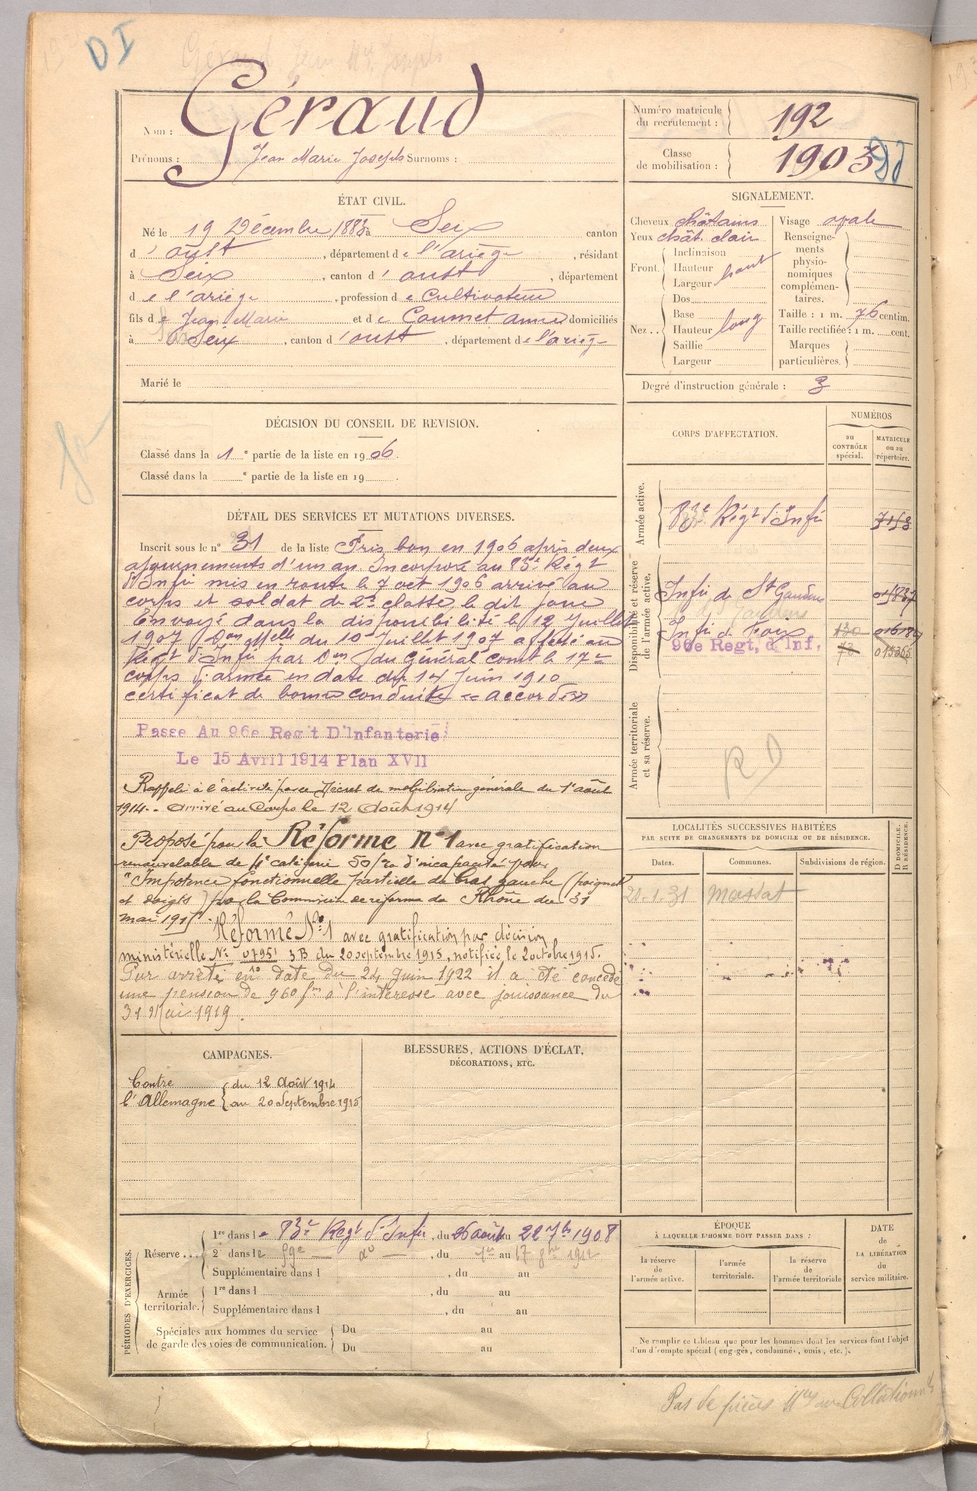 DI
Géraud Jean Mie Joseph
Nom : Géraud
Prénoms : Jean Marie Joseph Surnoms :
Numéro matricule du recrutement : 192
Classe de mobilisation : 1903
ÉTAT CIVIL.
Né le 19 Décembre 1883 à Seix canton
d'oust, département de l'ariège, résidant
à Seix, canton d'oust, département
de l'ariège, profession de Cultivateur
fils de Jean Marie et de Coumet anne domiciliés
à Seix, canton d'oust, département de l'ariège
Marié le
SIGNALEMENT.
Cheveux châtains
Yeux chât. clair
Front. Inclinaison
Hauteur haut
Largeur
Nez.. Dos
Base
Hauteur long
Saillie
Largeur
Visage ovale
Renseignements physionomiques complémentaires.
Taille : 1 m. 76 centim.
Taille rectifiée : 1 m. cent.
Marques particulières.
Degré d'instruction générale : 3
DÉCISION DU CONSEIL DE REVISION.
Classé dans la 1e partie de la liste en 1906.
Classé dans la e partie de la liste en 19 .
DÉTAIL DES SERVICES ET MUTATIONS DIVERSES.
Inscrit sous le n° 31 de la liste Pris bon en 1906 après deux
ajournements d'un an. Incorporé au 83e Régt
d'Infie mis en route le 7 oct 1906 arrivé au
corps et soldat de 2e classe le dit jour
Envoyé dans la disponibilité le 12 Juillet
1907 du 10 Juillet 1907 affecté au
Régt d'Infie par Don du Général comt le 17e
corps d'armée en date du 14 Juin 1910
certificat de bonne conduite accordé
Passe Au 96e Regit D'Infanterie
Le 15 Avril 1914 Plan XVII
Rappelé à l'activité par Décret de mobilisation générale du 1er août
1914. arrivé au Corps le 12 Août 1914
Proposé pour la Réforme N°1 avec gratification
renouvelable de 4e catégorie 50% d'incapacité pour
"Impotence fonctionnelle partielle du bras gauche (poignet
et doigts) par la Commission de réforme du Rhône du 31
mai 1915.
Réformé N°1 avec gratification par décision
ministérielle N° 0795 3B du 20 septembre 1915, notifiée le 2 octobre 1915.
Par arrêté en date du 24 Juin 1922 il a été concédé
une pension de 960 fcs à l'intéressé avec jouissance du
31 Mai 1919.
CORPS D'AFFECTATION.
NUMÉROS
DU CONTRÔLE spécial.
MATRICULE OU DU répertoire.
Armée active.
83e Régt d'Infie 7158
Disponibilité et réserve de l'armée active.
Infie de St Gaudens
Infie de Foix 130
96e Regt, d'Inf.
Armée territoriale et sa réserve.
RD
LOCALITÉS SUCCESSIVES HABITÉES
PAR SUITE DE CHANGEMENTS DE DOMICILE OU DE RÉSIDENCE.
Dates. Communes. Subdivisions de région. D DOMICILE. R RÉSIDENCE.
20.1.31 Massat
CAMPAGNES.
Contre l'Allemagne du 12 Août 1914
au 20 Septembre 1915
BLESSURES, ACTIONS D'ÉCLAT,
DÉCORATIONS, ETC.
PÉRIODES D'EXERCICES.
Réserve... 1re dans le 83e Régt d'Infie, du 26 août au 22 7bre 1908
2e dans le 59e — do —, du 1er au 17 8bre 1912
Supplémentaire dans l , du au
Armée territoriale. 1re dans l , du au
Supplémentaire dans l , du au
Spéciales aux hommes du service de garde des voies de communication. Du au
Du au
ÉPOQUE
À LAQUELLE L'HOMME DOIT PASSER DANS :
la réserve de l'armée active.
l'armée territoriale.
la réserve de l'armée territoriale
DATE de LA LIBÉRATION du service militaire.
Ne remplir ce tableau que pour les hommes dont les services font l'objet
d'un décompte spécial (engagés, condamnés, omis, etc.).
Pas de pièces